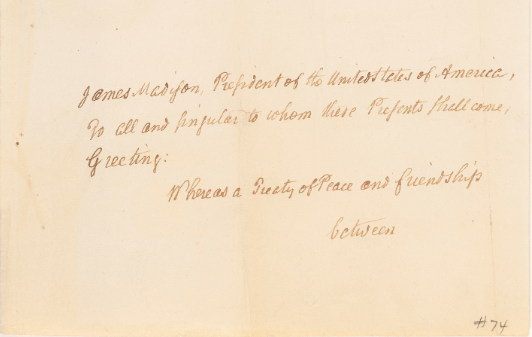 James Madison, President of the United States of America,
To all and singular to whom these Presents shall come,
Greeting:
Whereas a Treaty of Peace and friendship
between
#74